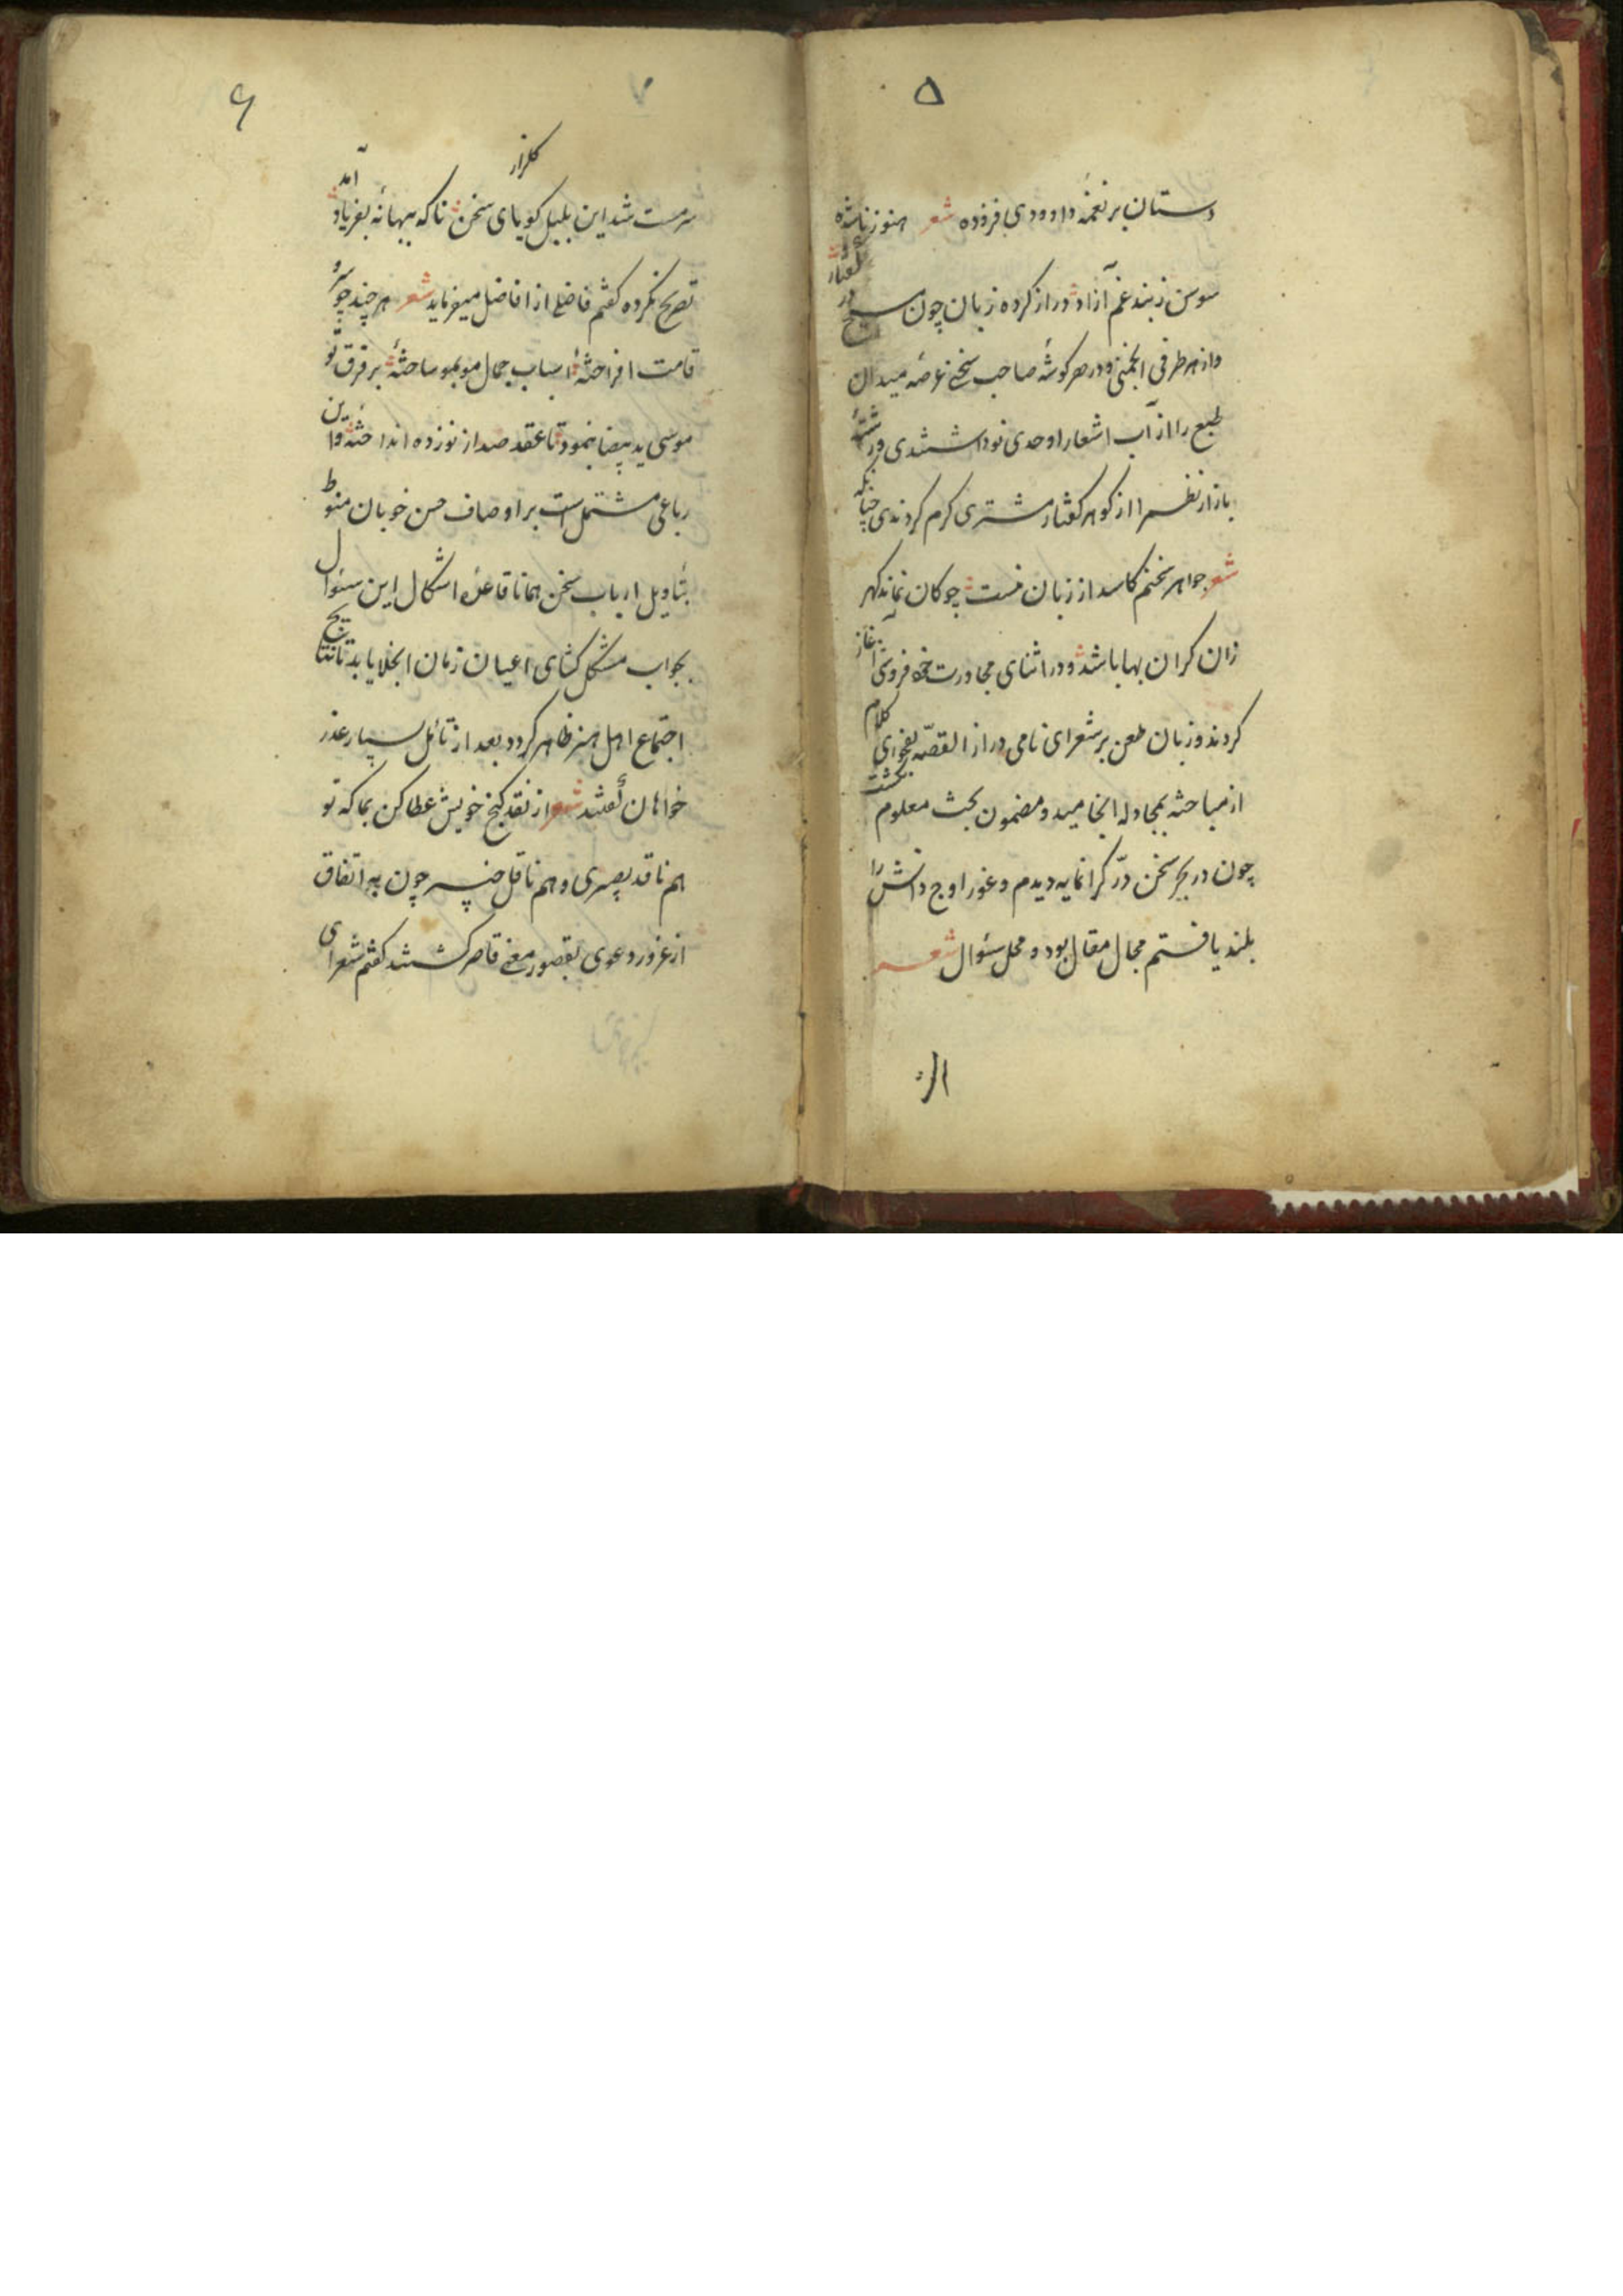 ۵
دستان بر نغمهٔ داوودی افزوده شعر هنوز ناشده
سوسن ز بند غم آزاد دراز کرده زبان چون مسیح در گفتار
واز هر طرفی انجمنی ودر هر گوشهٔ صاحب سخنی عرصهٔ میدان
طبع را از آب اشعار اوحدی نوداشتندی ورشتهٔ
بازار نظم را از گوهر گفتار مشتری گرم کردندی چنانکه
شعر جواهر سخنم کاسد از زبان منست چو کان نماند گهر
زان گران بها باشد ودر اثنای مجاورت خرده فروشی آغاز
کردند وزبان طعن بر شعرای نامی دراز القصّه بفحوای کلام
از مباحثه بمجادله انجامید ومضمون بحث معلوم گشت
چون در بحر سخن درّ گرانمایه دیدم وغور اوج دانش را
بلند یافتم مجال مقال بود ومحل سئوال شعر
۶
۷
سرمست شد این بلبل گویای سخن ناگه ببهانهٔ گلزار بفریاد آمد
تصریح نکرده گفتم فاضلی از افاضل میفرماید شعر هر چند چو سرو
قامت افراختهٔ اسباب جمال موبمو ساختهٔ بر فرق تو
موسی ید بیضا بنمود تا عقد صد از نوزده انداختهٔ واین
رباعی مشتمل است بر اوصاف حسن خوبان منوط
بتاویل ارباب سخن همانا قاعدهٔ اشکال این سئوال
بجواب مشکل گشای اعیان زمان انجلا یابد تا نتایج
اجتماع اهل هنر ظاهر گردد بعد از تأمل بسیار عذر
خواهان گفتند شعر از نقد گنج خویش عطا کن بما که تو
هم ناقد بصیری وهم ناقل خبیر چون به اتفاق
از غرور دعوی بقصور معنی قاصر گشتند گفتم شعرای